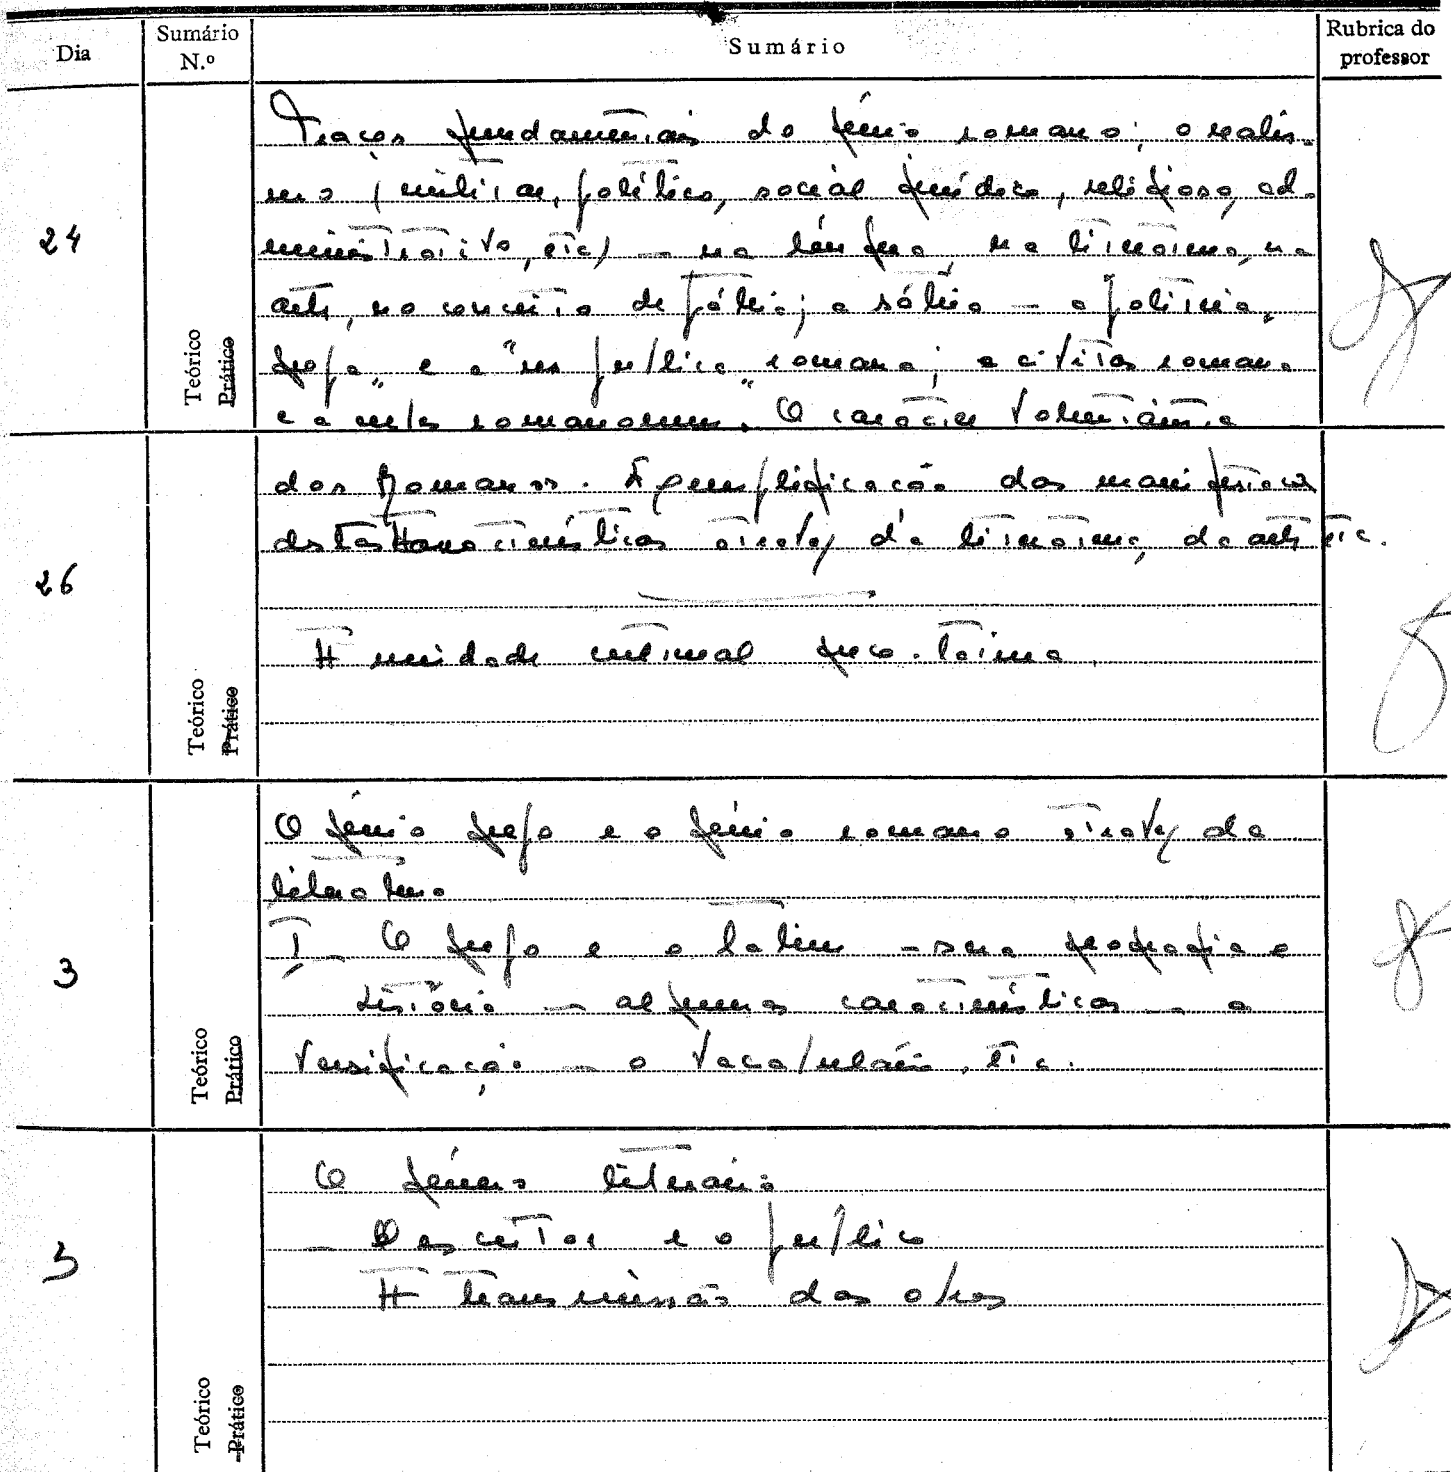 Dia Sumário N.º Sumário Rubrica do professor
24
Traços fundamentais do génio romano: o realis-
mo (militar, político, social jurídico, religioso, ad-
ministrativo, etc) — na língua, na literatura, na
arte, no conceito de pátria; a sátira — a "politeia"
grega" e a "res publica" romana; a civitas romana
e a urbs romanorum. O carácter voluntário
Teórico Prático
26
dos Romanos. Exemplificação das manifestações
destas características através da literatura, da arte, etc.
A unidade cultural greco-latina.
Teórico Prático
3
O génio grego e o génio romano através da
literatura
I - O grego e o latim - sua geografia e
história — algumas características — a
versificação — o vocabulário, etc.
Teórico Prático
5
O género literário
- O escritor e o público
A transmissão das obras
Teórico Prático